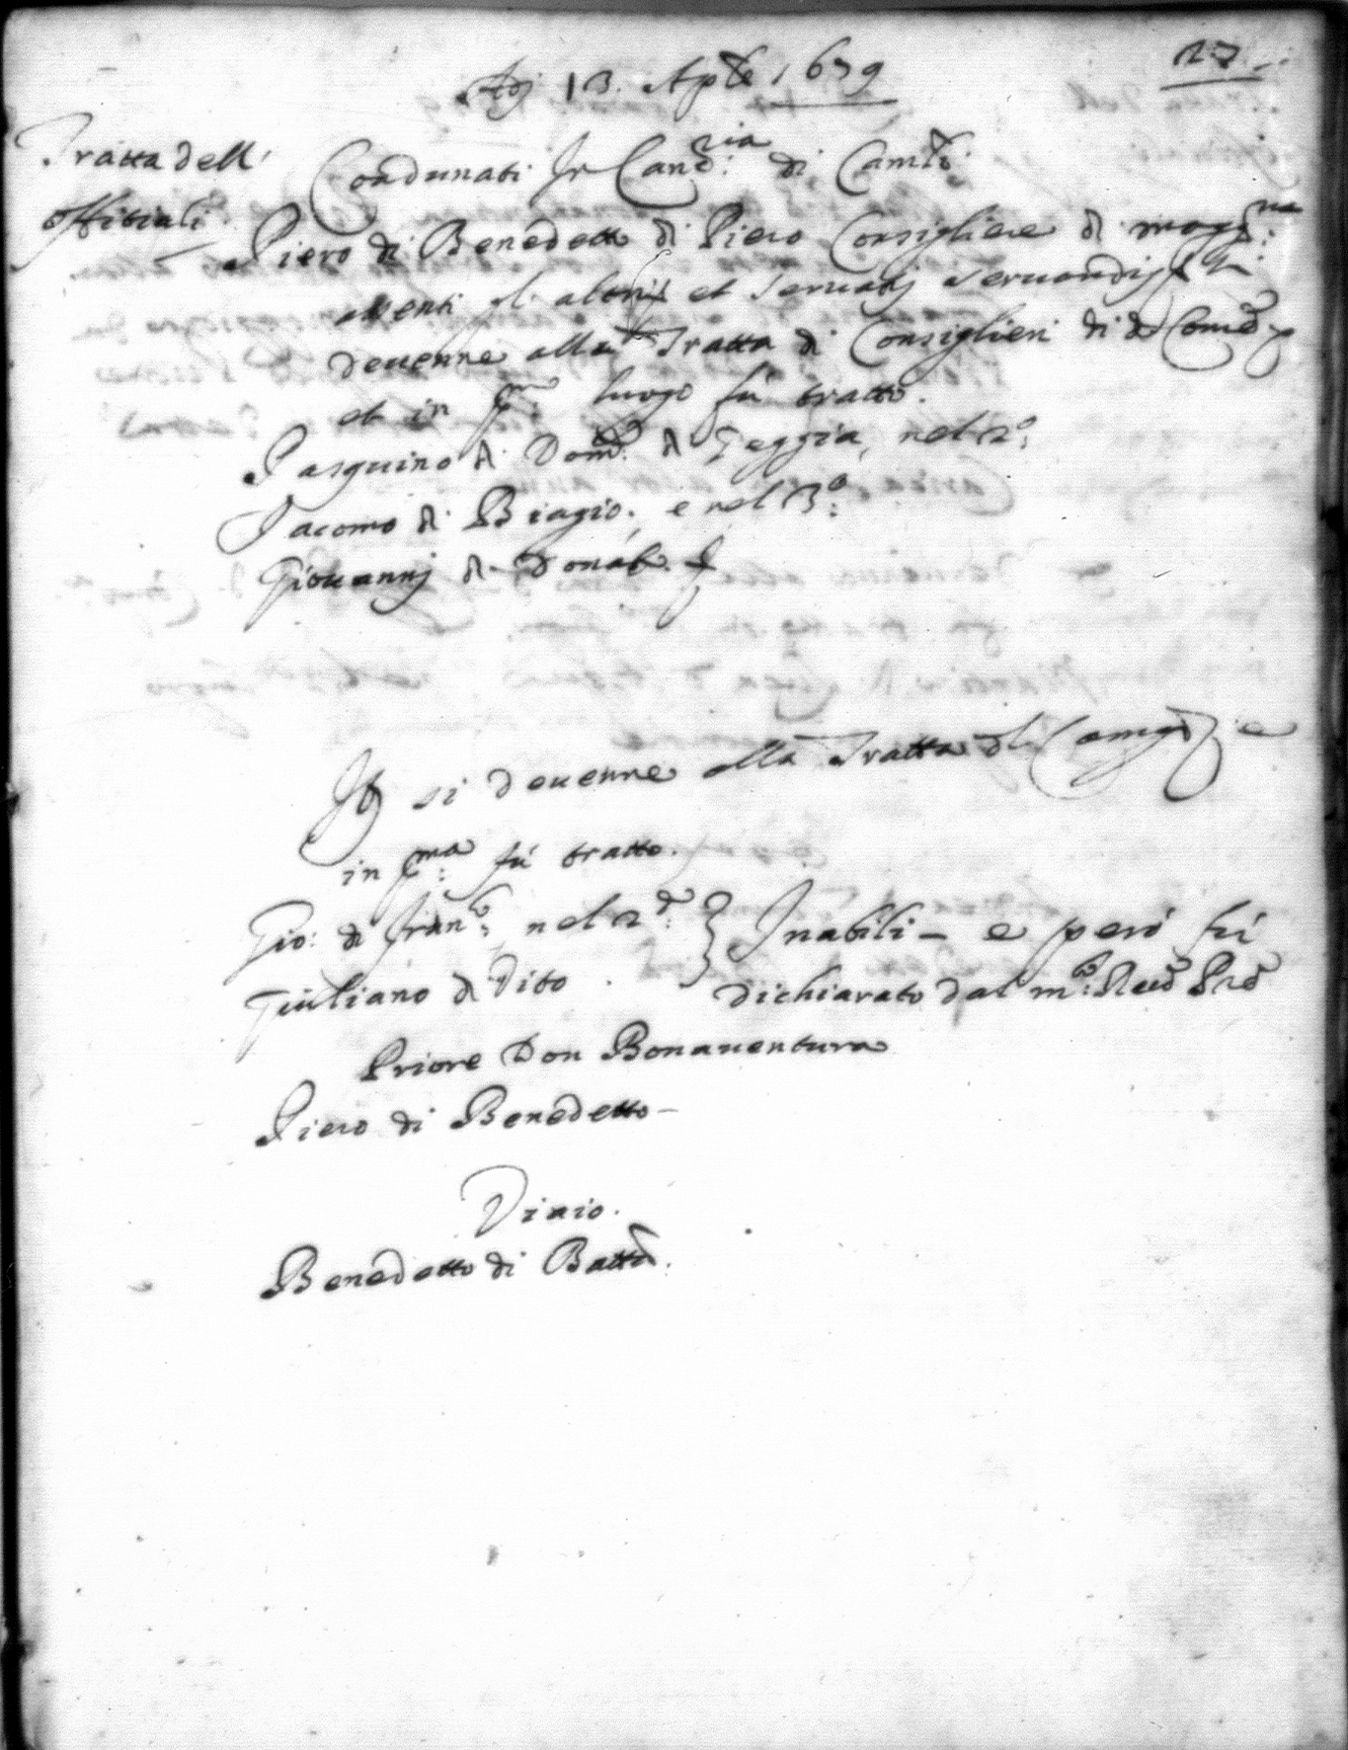 27
Adj 13. Aple 1679
Tratta dell'
Offitiali
Coadunati In Canc:ria di Camli:
Piero di Benedetto di Piero Consigliere di magg:
absenti gl'altri et servatis servandis
devenne alla Tratta di Consiglieri di do Come
et in p:mo luogo fù tratto.
Pasquino di Dom:co di Geggia, nel 2:o
Jacomo di Biagio, e nel 3:o
Giovannj di Donato
Ite si devenne alla Tratta del Camgo e
in p:ma fù tratto.
Gio: di Fran:co nel 2:do } Inabili - e però fù
Giuliano di Vito . dichiarato dal m:to Revdo Pre
Priore Don Bonaventura
Piero di Benedetto -
Viaio.
Benedetto di Batta: